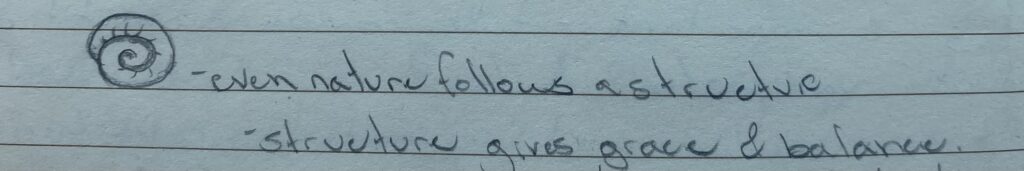 -even nature follows a structure
-structure gives grace & balance.